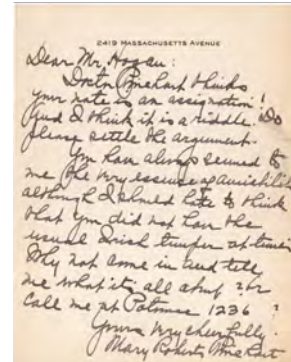 2419 MASSACHUSETTS AVENUE
Dear Mr. Hogan:
Doctor Rinehart thinks
your note is an assignation!
And I think it is a riddle. Do
please settle the argument.
You have always seemed to
me the very essence of amiability
although I should hate to think
that you did not have the
usual Irish temper at times
Why not come in and tell
me what it's all about? or
call me at Potomac 1236?
Yours very cheerfully
Mary Roberts Rinehart